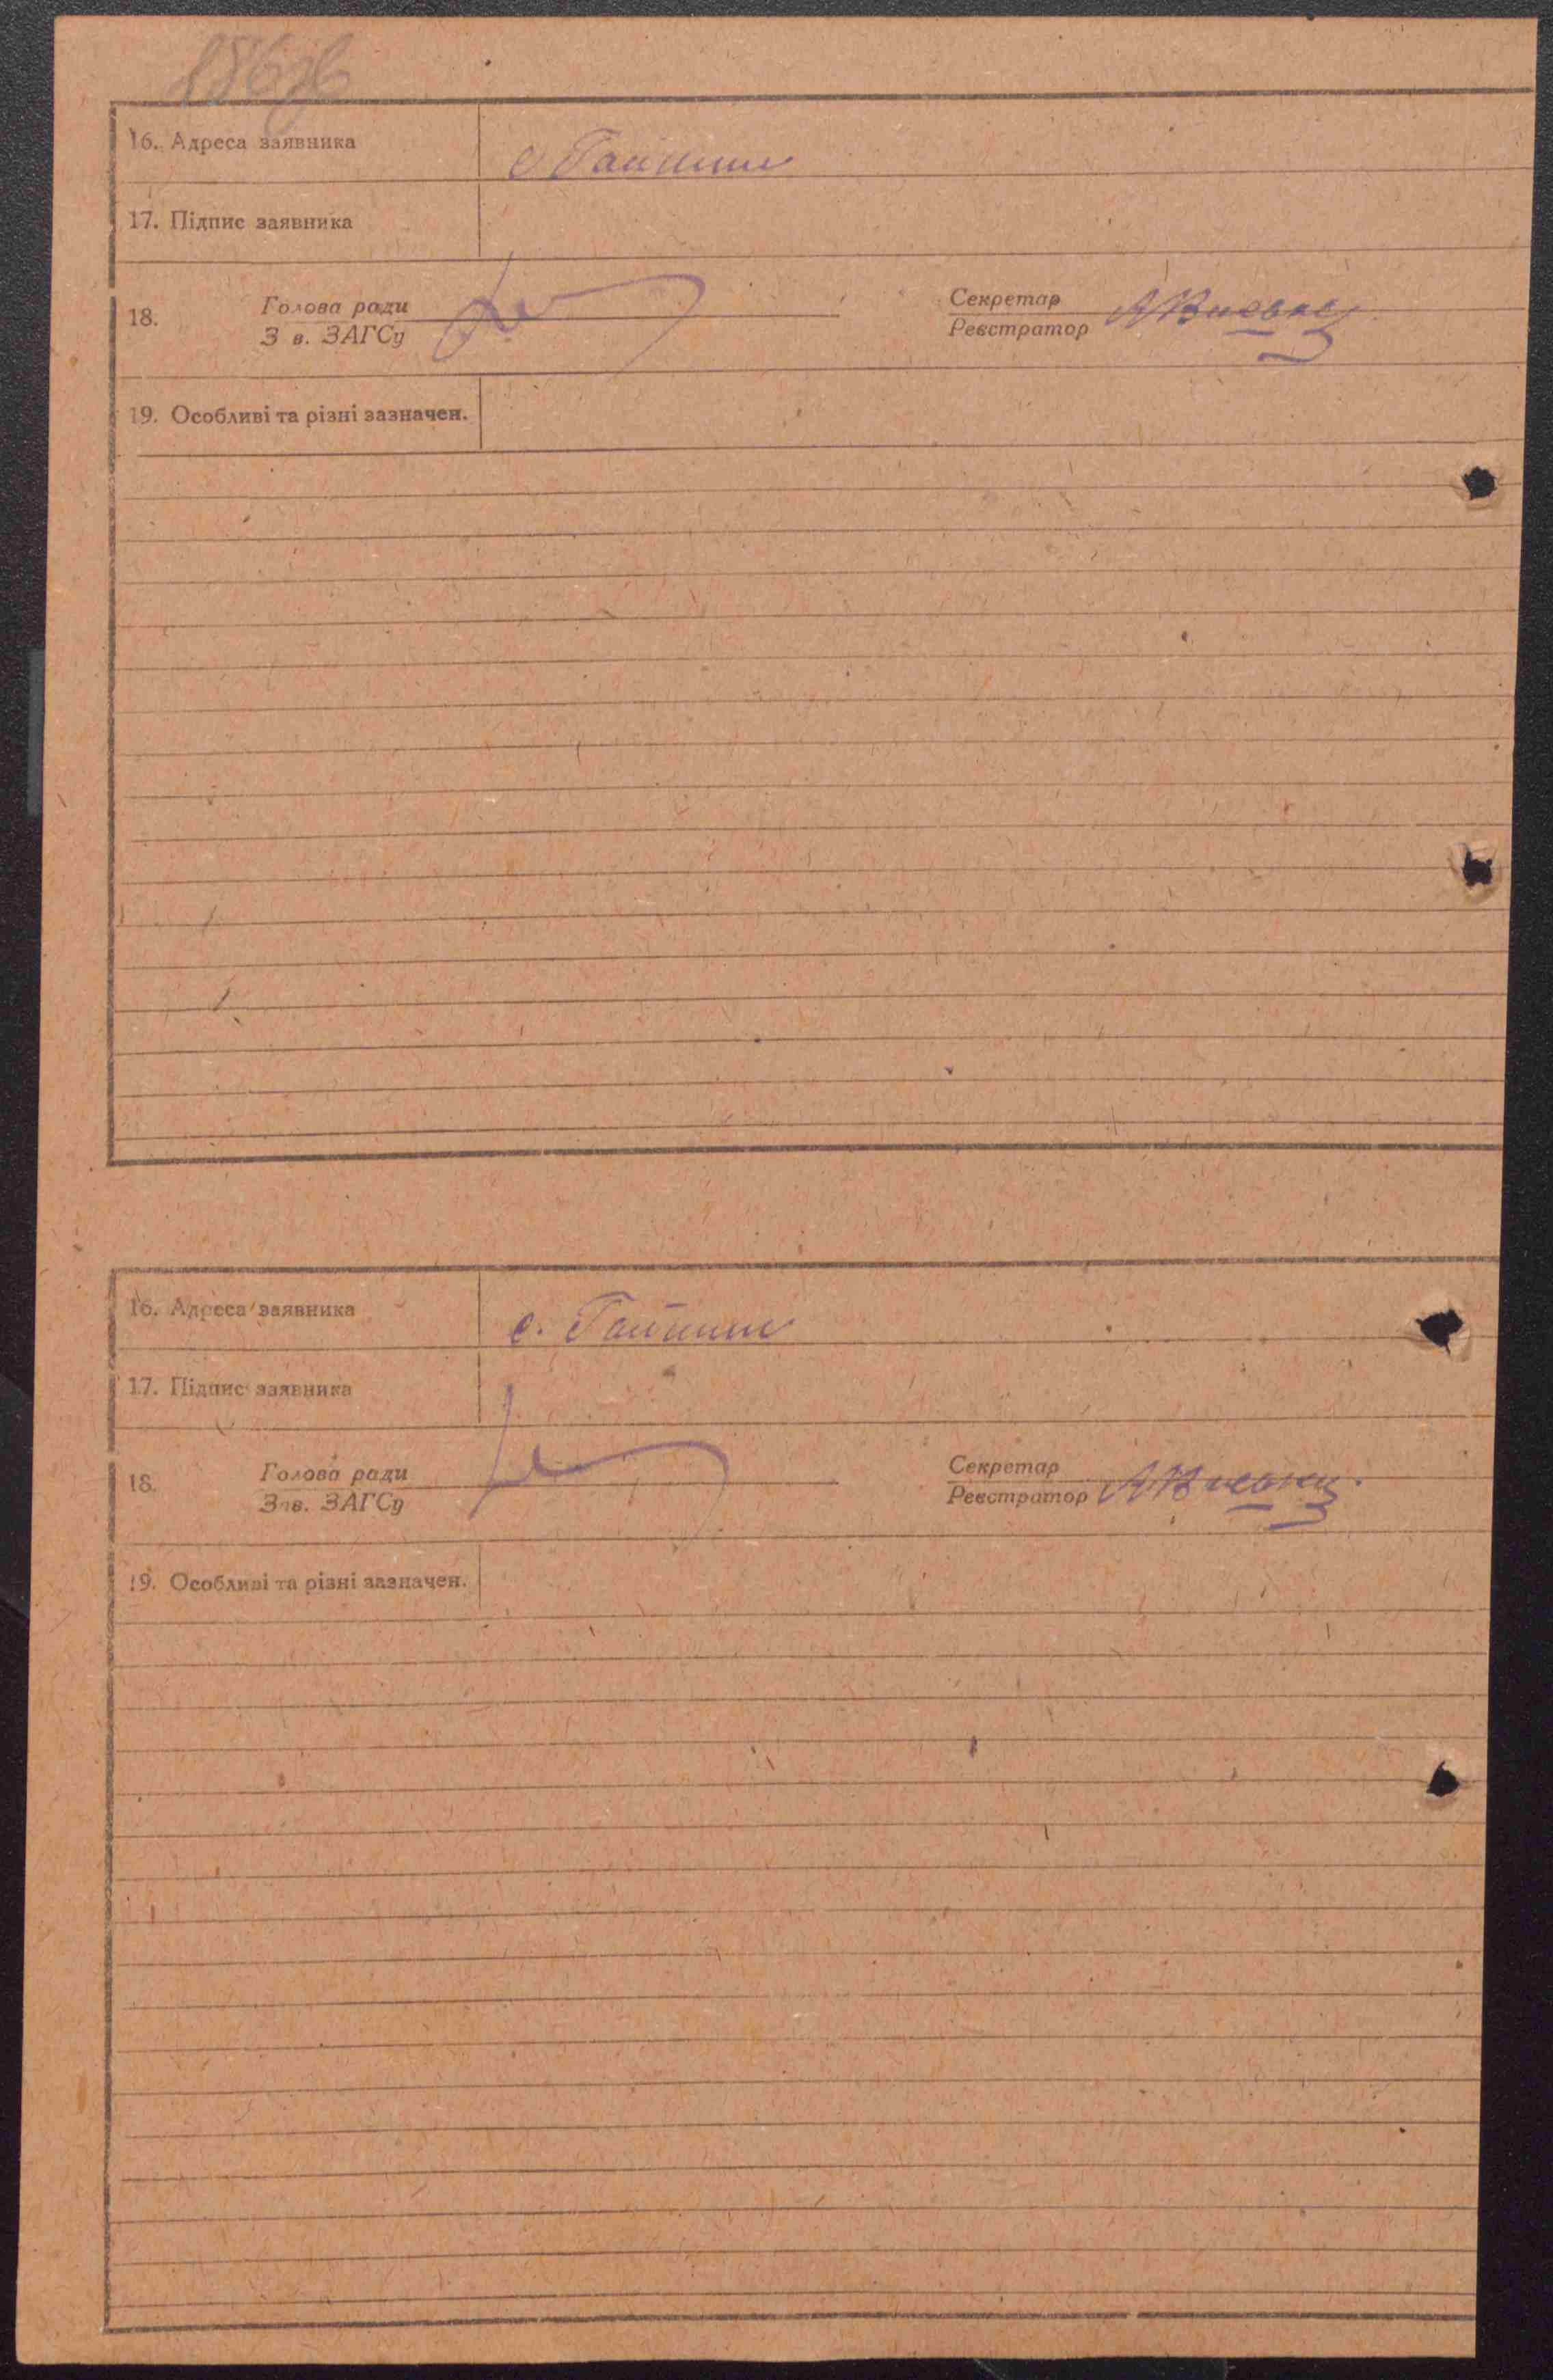 16. Адреса заявника
с Гайшин
17. Підпис заявника
18. Голова ради Секретар
Зав. ЗАГСу Реєстратор
19. Особливі та різні зазначен.
16. Адреса заявника
с. Гайшин
17. Підпис заявника
18. Голова ради Секретар
Зав. ЗАГСу Реєстратор
19. Особливі та різні зазначен.